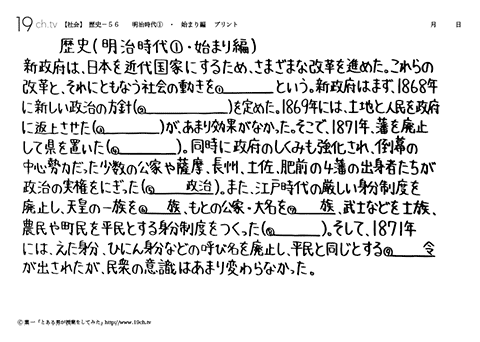 19ch.tv 【社会】 歴史－56 明治時代① ・ 始まり編 プリント 月 日
歴史(明治時代①・始まり編)
新政府は、日本を近代国家にするため、さまざまな改革を進めた。これらの
改革と、それにともなう社会の動きを①______という。新政府はまず、1868年
に新しい政治の方針(②______)を定めた。1869年には、土地と人民を政府
に返上させた(③______)が、あまり効果がなかった。そこで、1871年、藩を廃止
して県を置いた(④______)。同時に政府のしくみも強化され、倒幕の
中心勢力だった少数の公家や薩摩、長州、土佐、肥前の4藩の出身者たちが
政治の実権をにぎった(⑤______政治)。また、江戸時代の厳しい身分制度を
廃止し、天皇の一族を⑥____族、もとの公家・大名を⑦____族、武士などを士族、
農民や町民を平民とする身分制度をつくった(⑧______)。そして、1871年
には、えた身分、ひにん身分などの呼び名を廃止し、平民と同じとする⑨____令
が出されたが、民衆の意識はあまり変わらなかった。
©葉一「とある男が授業をしてみた」http://www.19ch.tv